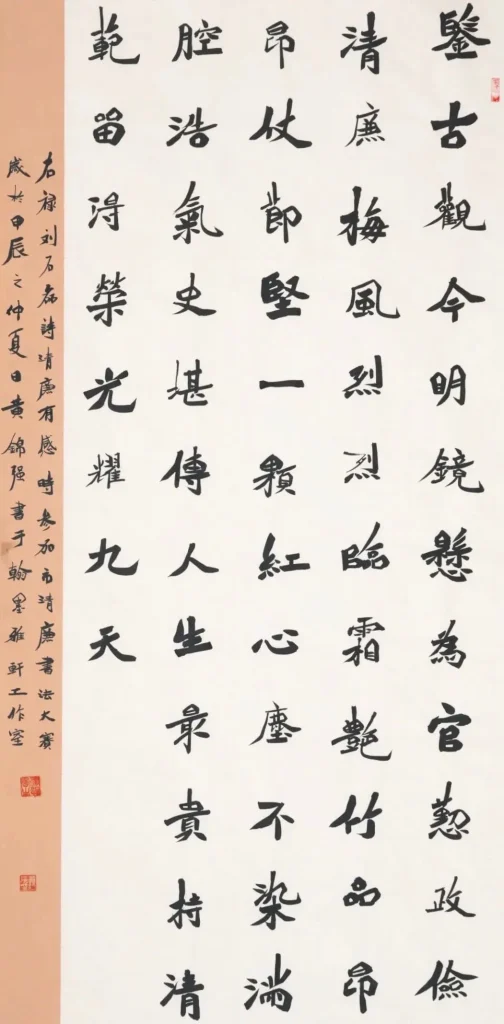 鑒古觀今明鏡懸為官懃政儉
清廉梅風烈烈臨霜艷竹品昂
昂仗節堅一顆紅心塵不染滿
腔浩氣史堪傳人生最貴持清
範留得榮光耀九天
右祿刘石磊詩清廉有感時参加市清廉書法大賽
歲於甲辰之仲夏日黄錦强書于翰墨雅軒工作室